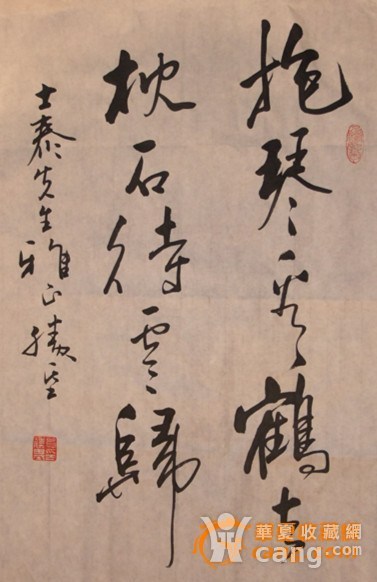 抱琴看鶴去
枕石待雲歸
士泰先生雅正
華夏收藏網
cang.com